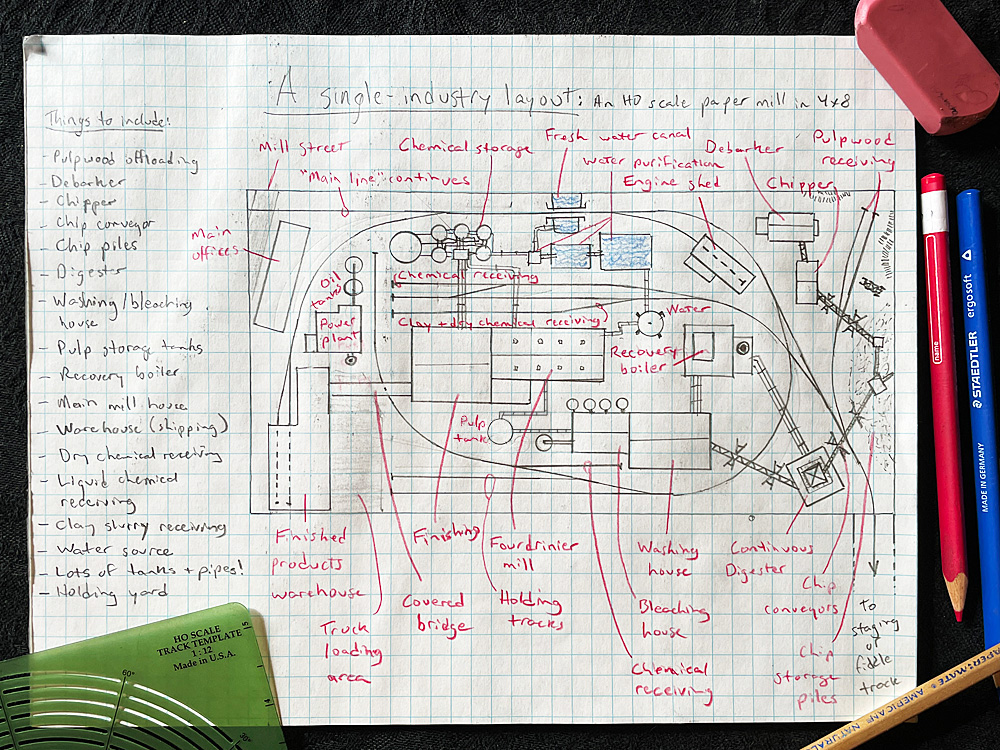 A single-industry layout: An HO scale paper mill in 4x8
Things to include:
- Pulpwood offloading
- Debarker
- Chipper
- Chip conveyor
- Chip piles
- Digester
- Washing/bleaching
house
- Pulp storage tanks
- Recovery boiler
- Main mill house
- Warehouse (shipping)
- Dry chemical receiving
- Liquid chemical
receiving
- Clay slurry receiving
- Water source
- Lots of tanks + pipes!
- Holding yard
Mill street
Chemical storage
Fresh water canal
Debarker
Pulpwood
receiving
"Main line" continues
Water purification
Engine shed
Chipper
Main
offices
Oil
tanks
Chemical receiving
Power
plant
Clay + dry chemical receiving
Water
Recovery
boiler
Pulp
tank
Finished
products
warehouse
Finishing
Fourdrinier
mill
Washing
house
Continuous
Digester
Truck
loading
area
Covered
bridge
Holding
tracks
Bleaching
house
Chemical
receiving
Chip
conveyors
Chip
storage
piles
to
staging
or
fiddle
track
HO SCALE
TRACK TEMPLATE
1:12
Made in U.S.A.
60°
30°
5
4
name
MADE IN GERMANY
STAEDTLER
ergosoft
PAPER:MATE® AMERICAN® NATURAL